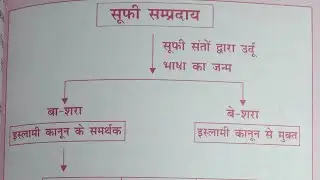 सूफी सम्प्रदाय
सूफी संतों द्वारा उर्दू
भाषा का जन्म
बा-शरा
बे-शरा
इस्लामी कानून के समर्थक
इस्लामी कानून से मुक्त